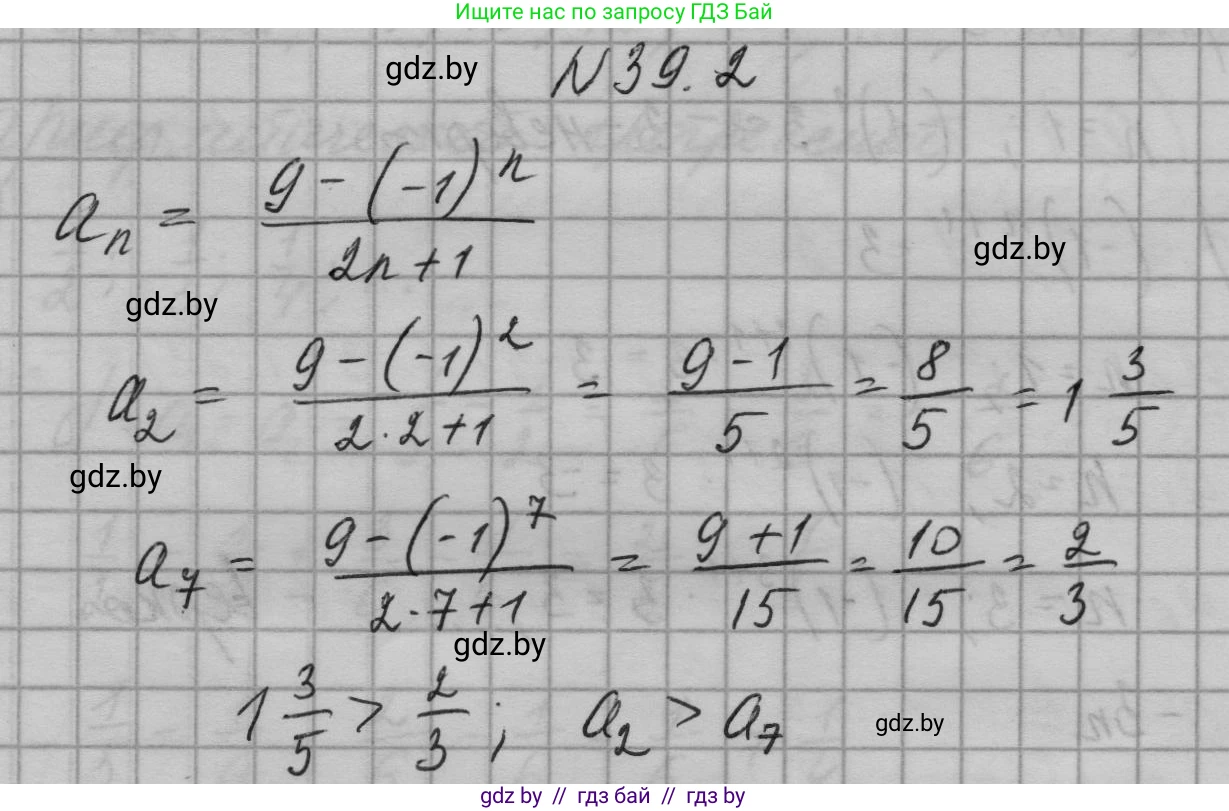 Ищите нас по запросу ГДЗ Бай
gdz.by N 39.2
aₙ = (9 - (-1)ⁿ) / (2n + 1)
gdz.by
gdz.by
a₂ = (9 - (-1)²) / (2·2 + 1) = (9 - 1) / 5 = 8/5 = 1 3/5
gdz.by
a₇ = (9 - (-1)⁷) / (2·7 + 1) = (9 + 1) / 15 = 10/15 = 2/3
gdz.by
1 3/5 > 2/3 ; a₂ > a₇ gdz.by
gdz by // гдз бай // gdz by